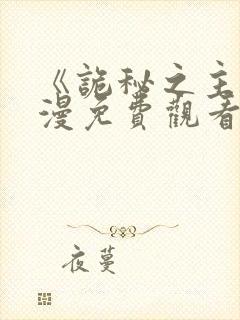 《詭秘之主
漫免費觀看
夜蔓